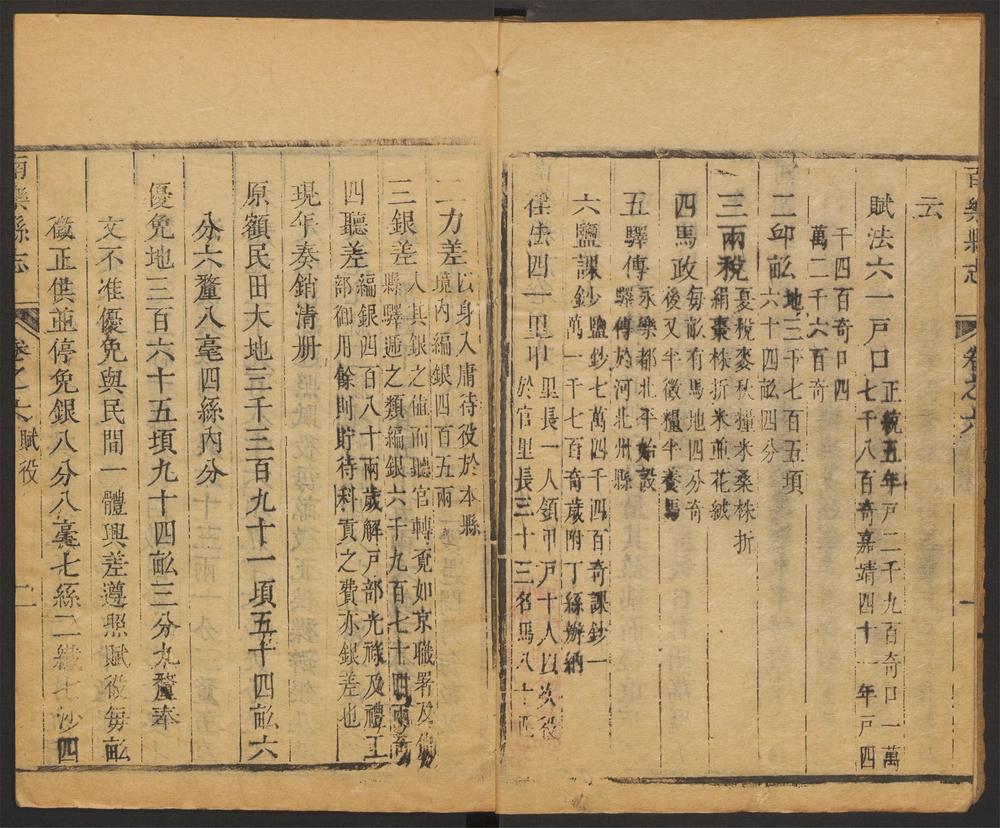 南樂縣志
卷之六
一
云
賦法六一戶口
正統五年戶二千九百奇口一萬
七千八百奇嘉靖四十一年戶四
千四百奇口四
萬二千六百奇
二邱畝
地三千七百五項
六十四畝四分
三兩稅
夏稅麥秋糧米桑株折
絹棗株折米並花絨
四馬政
每畝有馬地四分奇
後又半徵糧半養馬
五驛傳
永樂都北平始設
驛傳於河北州縣
六鹽課
鹽鈔七萬四千四百奇課鈔一
鈔萬一千七百奇歲附丁絲辦納
徭法四一里甲
里長一人領甲戶十人以次役
於官里長三十三名馬八十匹
二力差
以身入庸待役於本縣
境內編銀四百五兩
三銀差
人其銀之值而聽官轉覓如京職署及
縣驛遞之類編銀六千九百七十四兩奇
四聽差
編銀四百八十兩歲解戶部光祿及禮工
部御用餘則貯待科貢之費亦銀差也
現年奏銷清册
原額民田大地三千三百九十一項五十四畝六
分六釐八毫四絲內分
優免地三百六十五項九十四畝三分九釐奉
文不准優免與民間一體興差遵照賦役每畝
徵正供並停免銀八分八毫七絲二纖七沙四
南樂縣志
卷之六
賦役
二